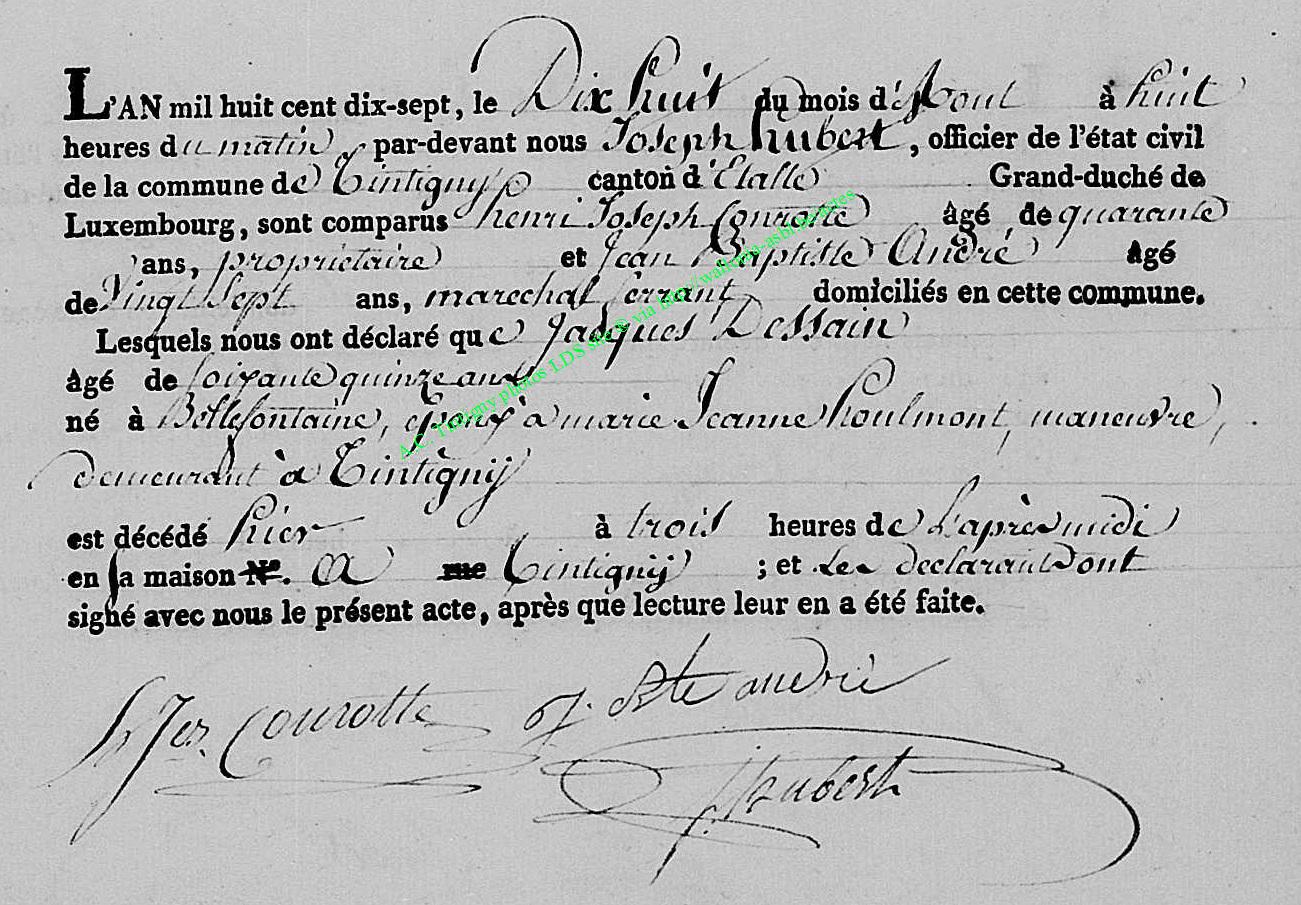 L'AN mil huit cent dix-sept, le Dix huit du mois d'Aout à huit
heures du matin, par-devant nous Joseph hubert, officier de l'état civil
de la commune de Tintigny canton d'Etalle Grand-duché de
Luxembourg, sont comparus henri Joseph Courotte âgé de quarante
ans, propriétaire et Jean Baptiste André âgé
de Vingt Sept ans, marechal ferrant domiciliés en cette commune.
Lesquels nous ont déclaré que Jacques Dessain
âgé de soixante quinze ans
né à Bellefontaine, epoux à marie Jeanne houlmont, maneuvre,
demeurant à Tintigny
est décédé hier à trois heures de L'après midi
en sa maison N°. a rue Tintigny ; et Les declarants ont
signé avec nous le présent acte, après que lecture leur en a été faite.
Courotte J. Bte andré
J hubert
A.C. Tintigny photos LDS site © via http://wallonia-asbl.be/actes